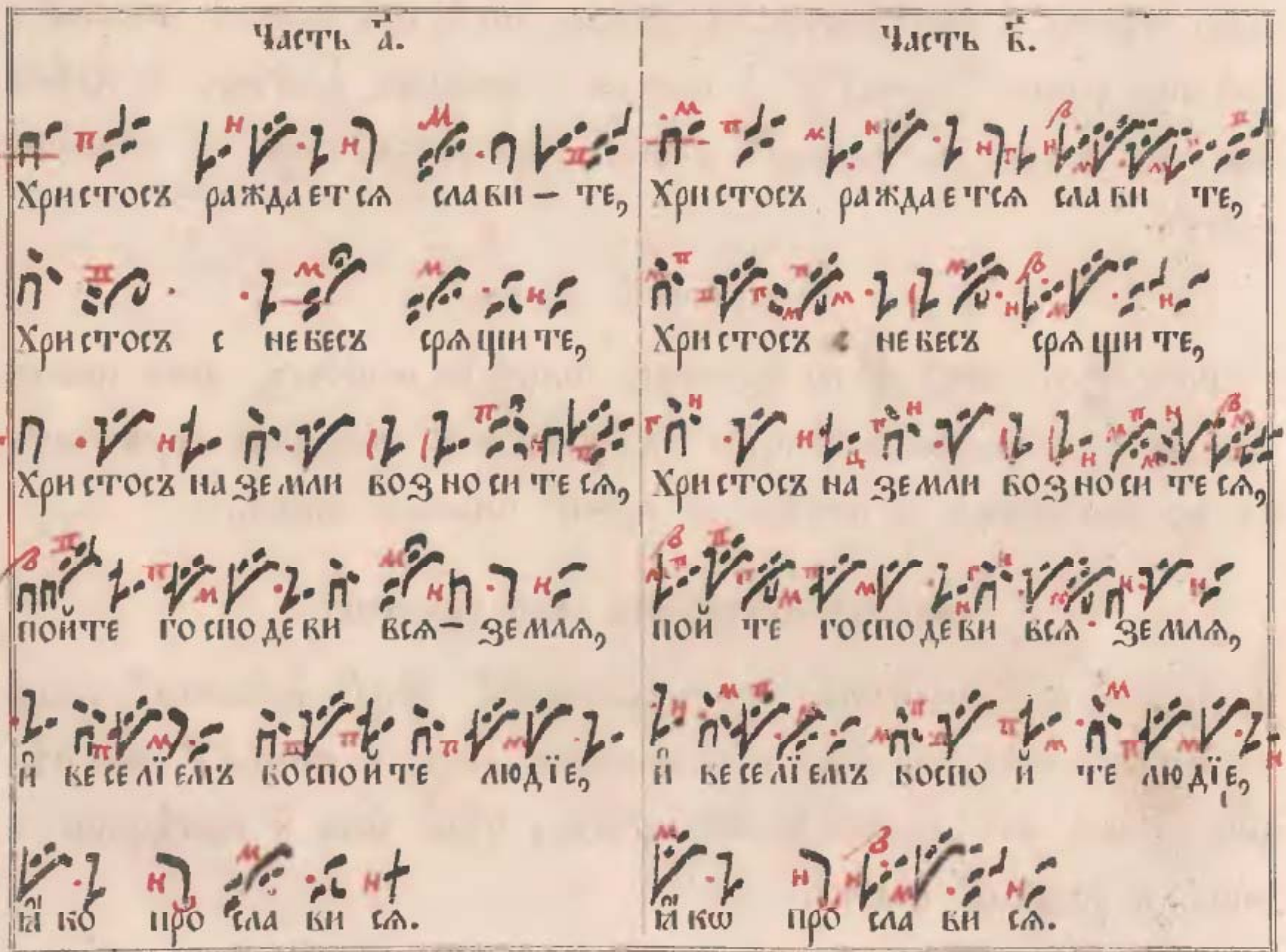 Часть а҃.
Хри стосъ ражда ет ся сла ви — те,
Христосъ с не бесъ сря щи те,
Хри стосъ на зе мли воз но си те ся,
пойте го спо де ви вся — зе мля,
й ве се лїемъ воспо й те людїе,
ꙗ ко про сла ви ся.
Часть в҃.
Христосъ ра жда е тся сла ви те,
Христосъ с не бесъ сря щи те,
Христосъ на зе мли воз но си те ся,
пой те го спо де ви вся зе мля,
й ве се лїемъ воспо й те людїе,
ꙗ кѡ про сла ви ся.